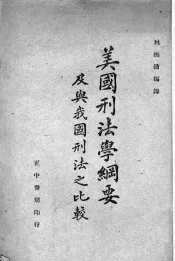 林振鏞編録
美國刑法學綱要
及與我國刑法之比較
正中書局印行